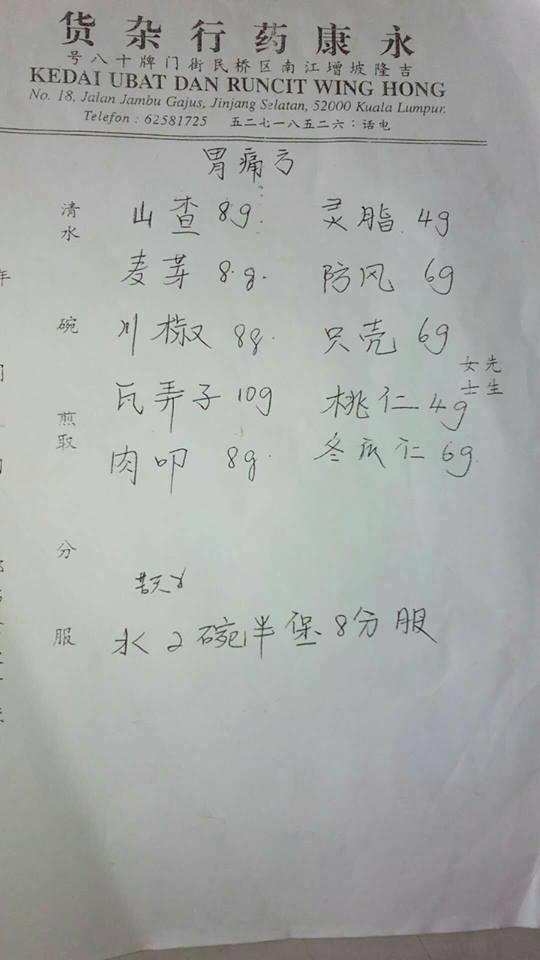 永康药行杂货
吉隆坡增江南区桥民街门牌十八号
KEDAI UBAT DAN RUNCIT WING HONG
No. 18, Jalan Jambu Gajus, Jinjang Selatan, 52000 Kuala Lumpur.
Telefon : 62581725 电话：六二五八一七二五
胃痛方
山查 8g. 灵脂 4g
麦芽 8.g. 防风 6g
川椒 8g. 只壳 6g
瓦弄子 10g 桃仁 4g
肉叩 8g. 冬瓜仁 6g
水2碗半煲8分服
先生
女士
清水 碗 煎取 分 服